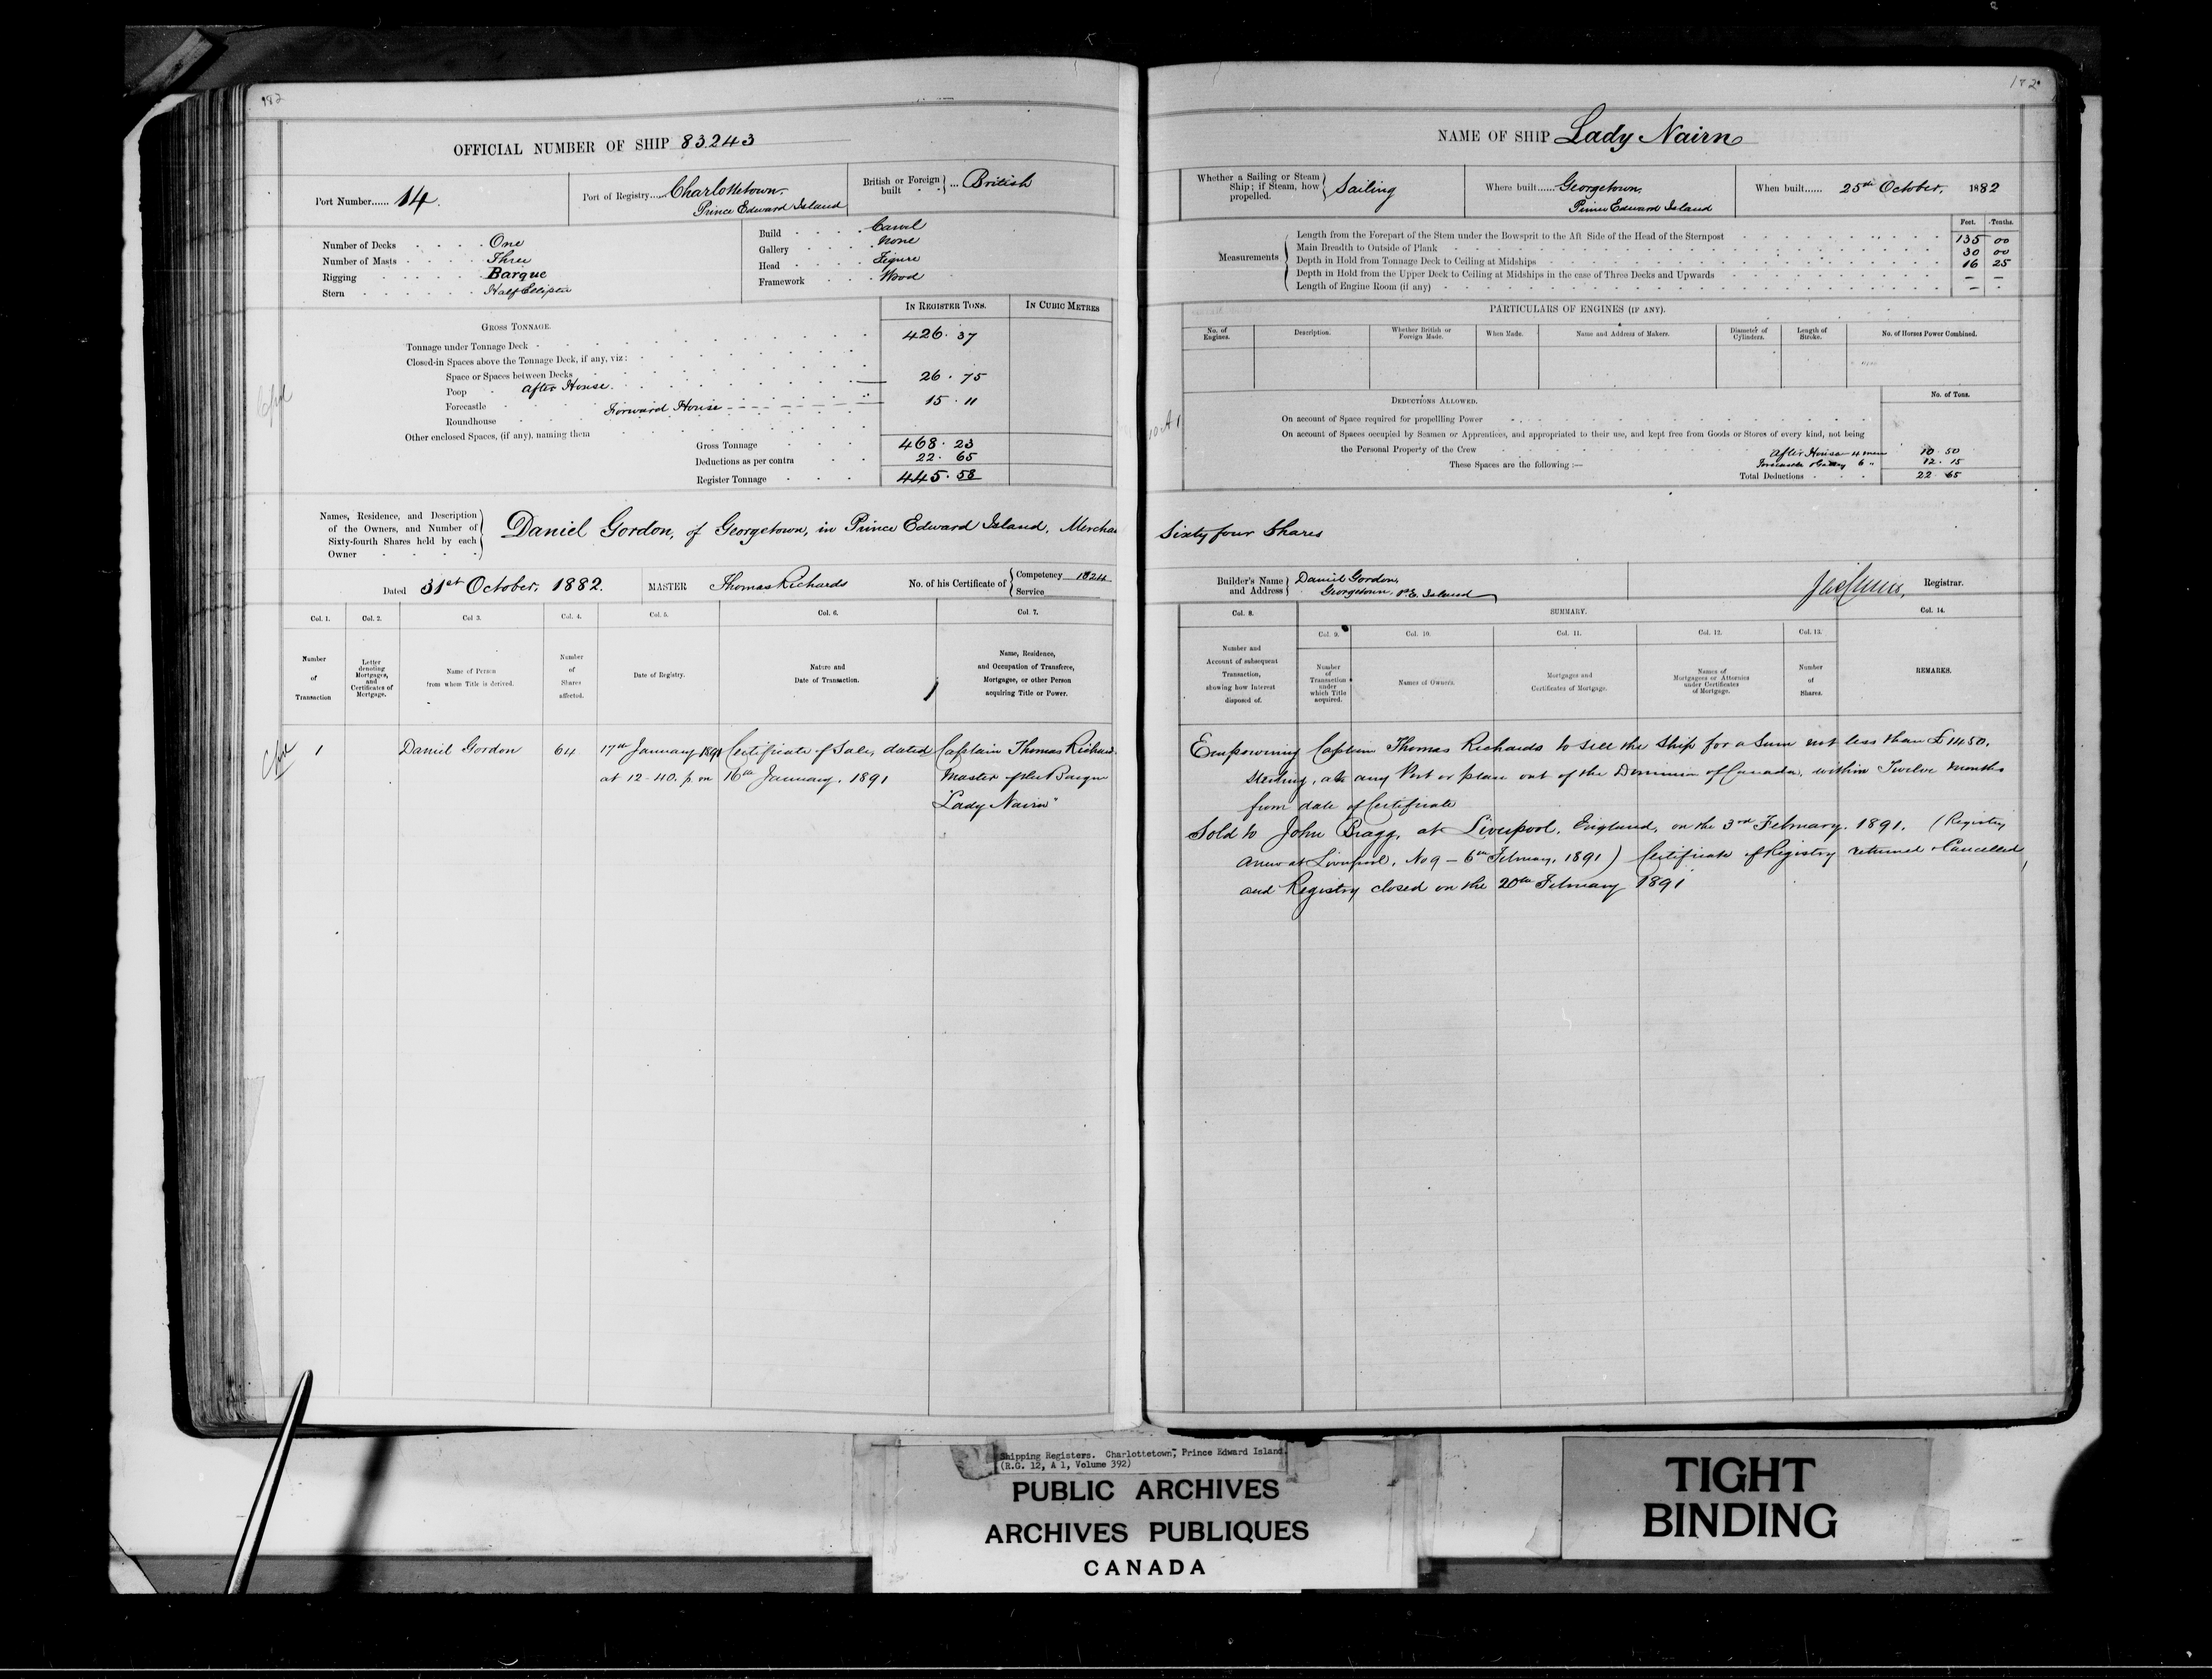 182
OFFICIAL NUMBER OF SHIP 83243
Port Number...... 14.
Port of Registry...... Charlottetown,
Prince Edward Island
British or Foreign built ... British
Number of Decks One
Number of Masts Three
Rigging Barque
Stern Half Elliptic
Build Carvel
Gallery None
Head Figure
Framework Wood
IN REGISTER TONS. IN CUBIC METRES
GROSS TONNAGE.
Tonnage under Tonnage Deck 426.37
Closed-in Spaces above the Tonnage Deck, if any, viz:
Space or Spaces between Decks
Poop After House 26.75
Forecastle Forward House 15.11
Roundhouse
Other enclosed Spaces, (if any), naming them
Gross Tonnage 468.23
Deductions as per contra 22.65
Register Tonnage 445.58
Names, Residence, and Description
of the Owners, and Number of
Sixty-fourth Shares held by each
Owner
Daniel Gordon, of Georgetown, in Prince Edward Island, Mercha
Dated 31st October, 1882. MASTER Thomas Richards No. of his Certificate of Competency
Service
Col. 1. Col. 2. Col 3. Col. 4. Col. 5. Col. 6. Col. 7.
Number of Transaction
Letter denoting Mortgages, and Certificates of Mortgage.
Name of Person from whom Title is derived.
Number of Shares affected.
Date of Registry.
Nature and Date of Transaction.
Name, Residence, and Occupation of Transferee, Mortgagee, or other Person acquiring Title or Power.
1 Daniel Gordon 64 17th January 1891 Certificate of Sale, dated Captain Thomas Richards
at 12-40. p m 16th January, 1891 Master of the Barque
"Lady Nairn"
182
NAME OF SHIP Lady Nairn
Whether a Sailing or Steam Ship; if Steam, how propelled. Sailing
Where built...... Georgetown,
Prince Edward Island
When built...... 25th October, 1882
Feet. Tenths.
Measurements
Length from the Forepart of the Stem under the Bowsprit to the Aft Side of the Head of the Sternpost 135 00
Main Breadth to Outside of Plank 30 00
Depth in Hold from Tonnage Deck to Ceiling at Midships 16 25
Depth in Hold from the Upper Deck to Ceiling at Midships in the case of Three Decks and Upwards - -
Length of Engine Room (if any) - -
PARTICULARS OF ENGINES (IF ANY).
No. of Engines. Description. Whether British or Foreign Made. When Made. Name and Address of Makers. Diameter of Cylinders. Length of Stroke. No. of Horses Power Combined.
DEDUCTIONS ALLOWED. No. of Tons.
On account of Space required for propellling Power
On account of Spaces occupied by Seamen or Apprentices, and appropriated to their use, and kept free from Goods or Stores of every kind, not being
the Personal Property of the Crew
After House 4 men 10 50
These Spaces are the following :— 6 " 12.15
Total Deductions 22 65
Sixty four Shares
Builder's Name and Address Daniel Gordon,
Georgetown, P.E. Island
Registrar.
Col. 8. SUMMARY. Col. 14.
Col. 9. Col. 10. Col. 11. Col. 12. Col. 13.
Number and Account of subsequent Transaction, showing how Interest disposed of.
Number of Transaction under which Title acquired.
Names of Owners.
Mortgages and Certificates of Mortgage.
Names of Mortgagees or Attornies under Certificates of Mortgage.
Number of Shares.
REMARKS.
Empowering Captain Thomas Richards to sell the Ship for a Sum not less than £1450.
Sterling, at any Port or place out of the Dominion of Canada, within Twelve months
from date of Certificate
Sold to John Bragg, at Liverpool, England, on the 3rd February, 1891. (Registry
anew at Liverpool, No 9 - 6th February, 1891) Certificate of Registry returned Cancelled,
and Registry closed on the 20th February 1891
Shipping Registers. Charlottetown, Prince Edward Island.
(R.G. 12, A 1, Volume 392)
PUBLIC ARCHIVES
ARCHIVES PUBLIQUES
CANADA
TIGHT
BINDING